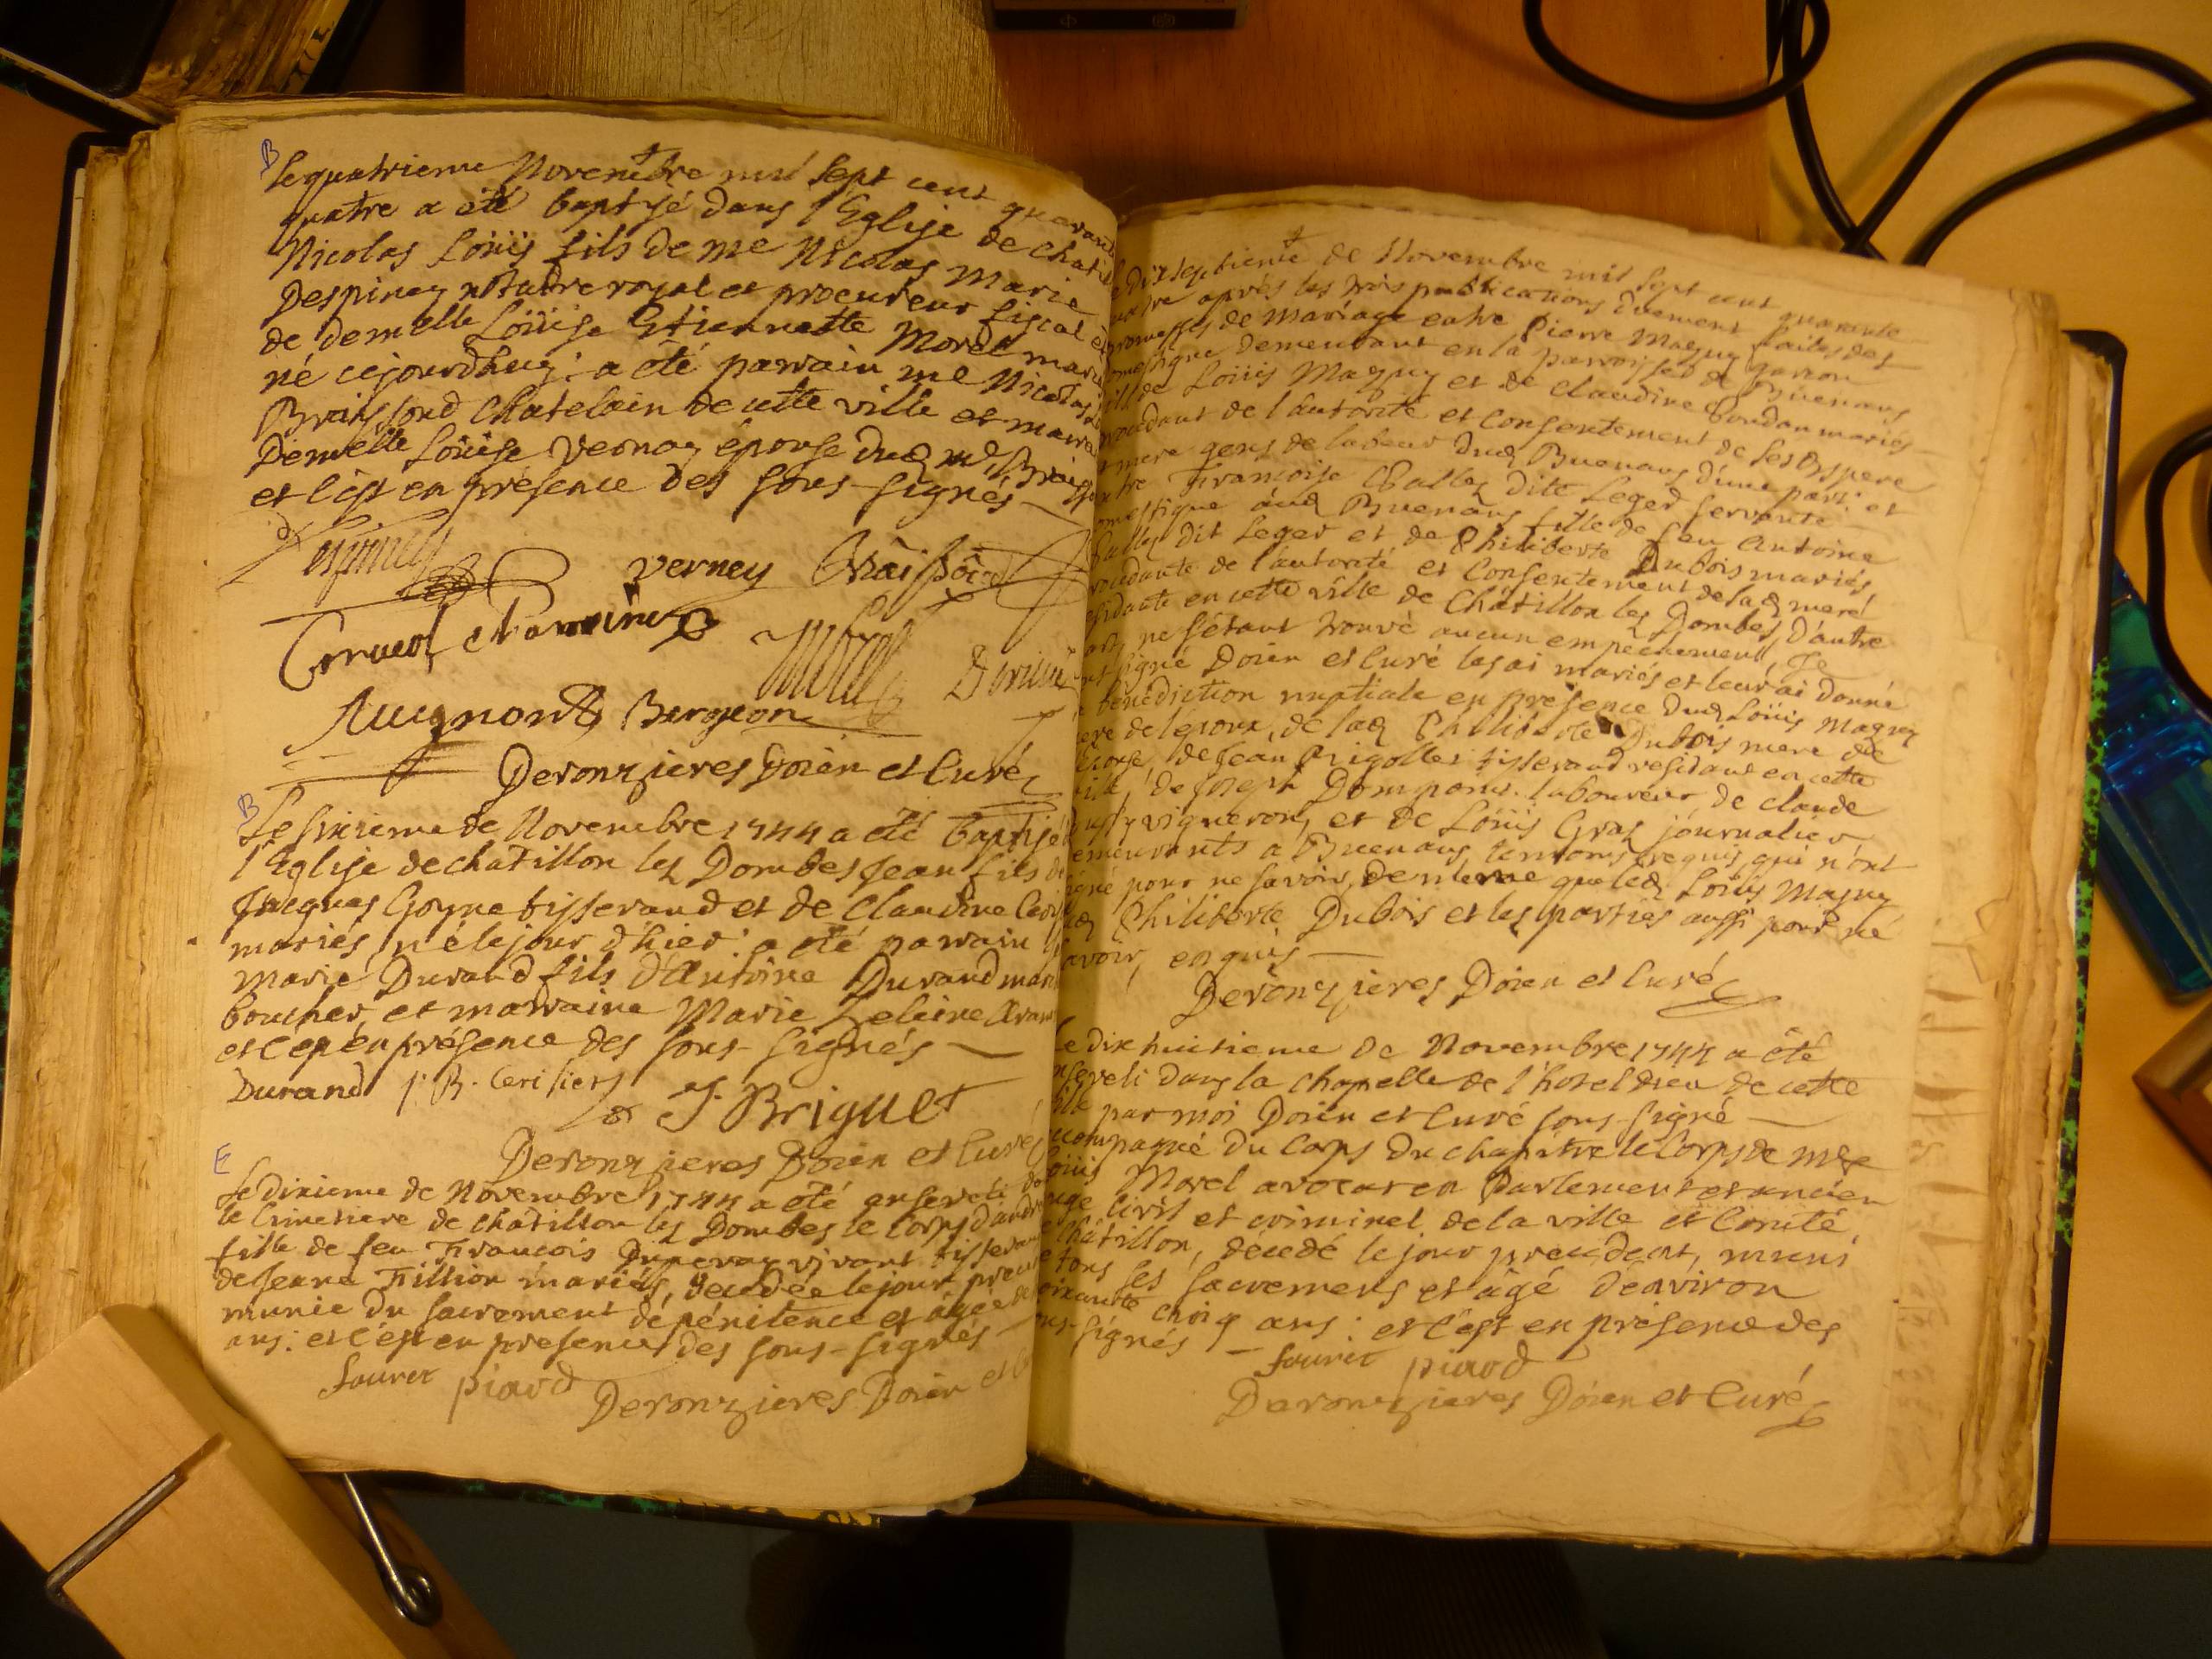 B
Le quatrieme Novembre mil sept cent quarante
quatre a été baptisé dans l'Eglise de Chatil
Nicolas Loüis fils de me Nicolas Marie
Despiney notaire royal et procureur fiscal et
de demelle Loüise Etiennette Morel mariés
né cejourdhuy: a été parrain me Nicolas
Braissoud Chatelain de cette ville et marra
Demelle Loüise Vernay épouse dud md. Brais
et c'est en présence des sous-signés
Despiney
verney Braissoud
Morel
Bergeon
Deronzieres Doien et Curé
B
Le sixieme de Novembre 1744 a été baptisé
l'Eglise de chatillon les Dombes Jean fils de
Jacques Goyne tisserand et de Claudine
mariés, né le jour d'hier: a été parrain
Marie Durand fils d'Antoine Durand mar
boucher, et marraine Marie
et c'est en présence des sous-signés
Durand J. B. Cerisier
J. Briguet
Deronzieres Doien et Curé
E
Le dixieme de Novembre 1744 a été enseveli da
le Cimetiere de chatillon les Dombes le corps d'andr
fille de feu Francois Duperay vivant tisserand
de Jeanne Fillion mariés, décédée le jour préce
munie du sacrement de pénitence et âgée de
ans: et c'est en presence des sous-signés
Sauret piard
Deronzieres Doien et Cu
Le dixseptieme de Novembre mil sept cent quarante
quatre après les trois publications düement faites des
promesses de Mariage entre Pierre Magny garcon
domestique demeurant en la parroisse de Buenans
fils de Loüis Magny et de Claudine Boudan mariés
procédant de l'autorité et consentement de ses dts pere
et mere gens de labeur dud Buenans d'une part: et
entre Françoise Vallet dite Leger servante
domestique aud Buenans fille de feu Antoine
Vallet dit Leger et de Philiberte Dubois mariés
procedante de l'autorité et consentement de lad mere
residante en cette ville de Châtillon les Dombes, d'autre
part, ne s'étant trouvé aucun empechement, Je
soussigné Doien et Curé les ai mariés et leur ai donné
la bénédiction nuptiale en présence dud Loüis Magny
pere de lepoux, de lad Philiberte Dubois mere de
l'epouse, de Jean Rigollet tisserand residant en cette
ville, de Joseph laboureur, de Claude
vigneron, et de Loüis Gras journalier
demeurants a Buenans temoins requis, qui n'ont
signé pour ne savoir, de même que led Loüis Magny
lad Philiberte Dubois et les parties aussi pour ne
savoir, enquis
Deronzieres Doien et Curé
Le dix huitieme de Novembre 1744 a été
enseveli dans la chapelle de l'hotel dieu de cette
ville par moi Doien et Curé sous-signé
accompagné du corps du chapitre le corps de me
Loüis Morel avocat en Parlement et ancien
juge Civil et criminel de la ville et Comté
Châtillon, décedé le jour precedent, muni
de tous ses sacremens et âgé d'environ
soixante cinq ans: et c'est en présence des
sous-signés
Sauret piard
Deronzieres Doien et Curé